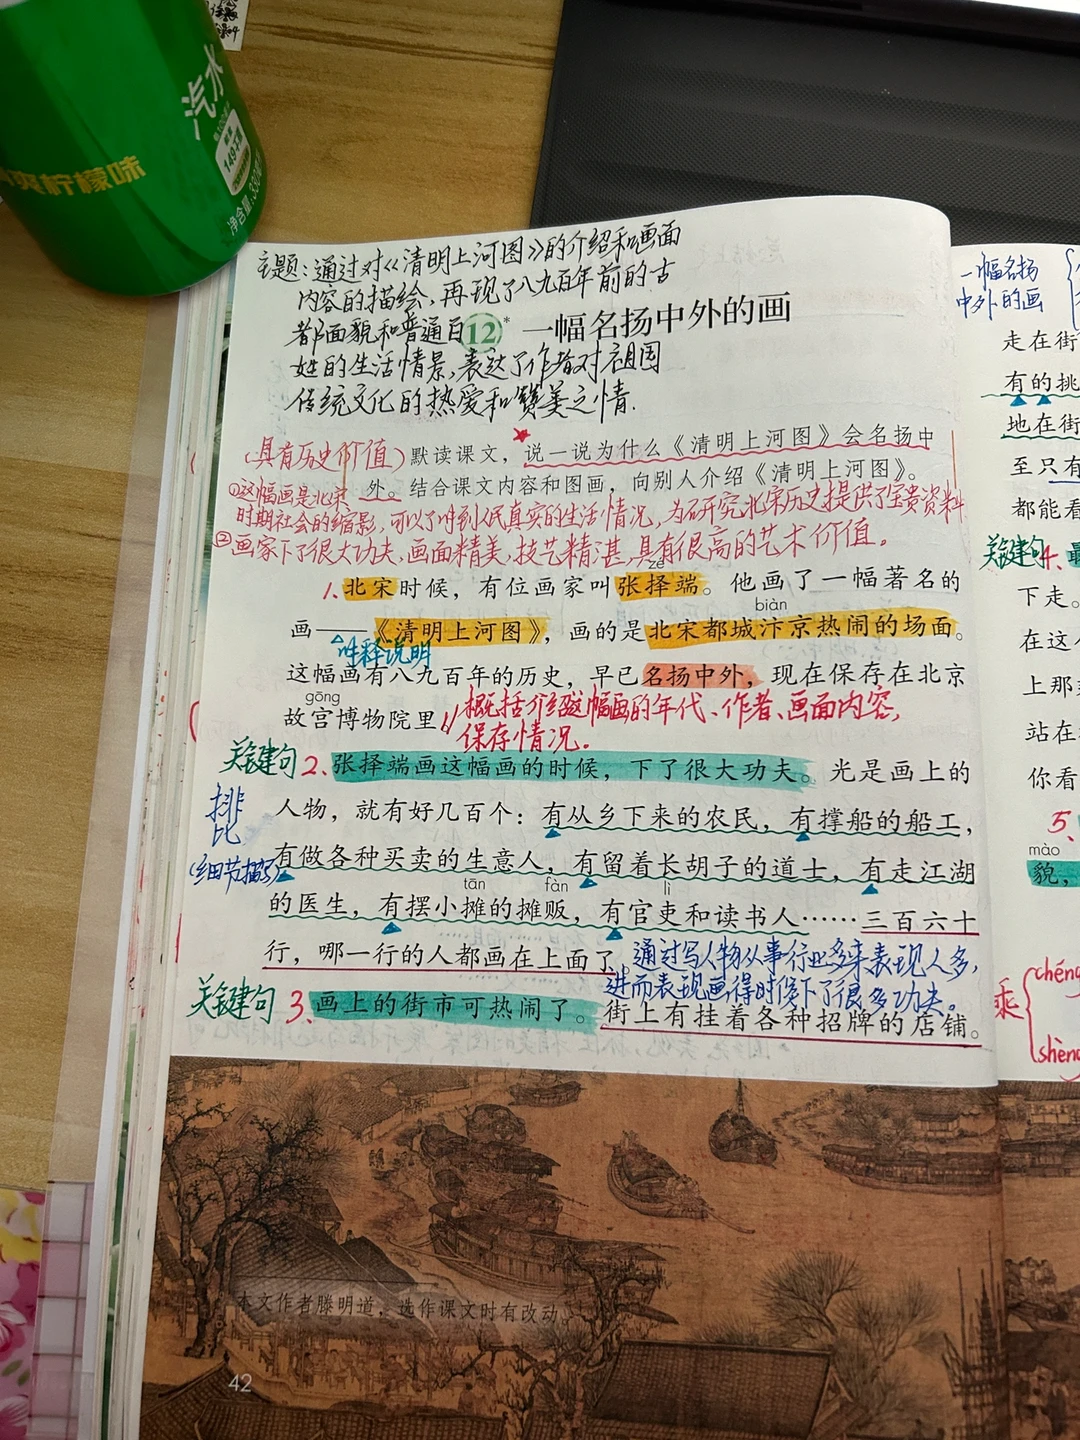 汽水
149千焦
净含量:330毫升
爽柠檬味
主题:通过对《清明上河图》的介绍和画面
内容的描绘,再现了八九百年前的古
都面貌和普通百
12* 一幅名扬中外的画
姓的生活情景,表达了作者对祖国
传统文化的热爱和赞美之情.
(具有历史价值)
默读课文,说一说为什么《清明上河图》会名扬中
外。结合课文内容和图画,向别人介绍《清明上河图》。
①这幅画是北宋
时期社会的缩影,可以了解到人民真实的生活情况,为研究北宋历史提供了宝贵资料
②画家下了很大功夫,画面精美,技艺精湛,具有很高的艺术价值。
zé
1、北宋时候,有位画家叫张择端。他画了一幅著名的
biàn
画——《清明上河图》,画的是北宋都城汴京热闹的场面。
解释说明
这幅画有八九百年的历史,早已名扬中外,现在保存在北京
gōng
故宫博物院里。
概括介绍这幅画的年代、作者、画面内容,
保存情况。
关键句 2、张择端画这幅画的时候,下了很大功夫。光是画上的
排比
人物,就有好几百个:有从乡下来的农民,有撑船的船工,
(细节描写)
有做各种买卖的生意人,有留着长胡子的道士,有走江湖
tān fàn lì
的医生,有摆小摊的摊贩,有官吏和读书人……三百六十
行,哪一行的人都画在上面了。
通过写人物从事行业多来表现人多,
进而表现画得时候下了很多功夫。
关键句 3、画上的街市可热闹了。街上有挂着各种招牌的店铺。
本文作者滕明道,选作课文时有改动。
42
一幅名扬
中外的画
走在街
有的挑
地在街
至只有
都能看
关键句 4、最
下走。
在这个
上那
站在
你看
5、
mào
貌,
乘
chéng
shèng